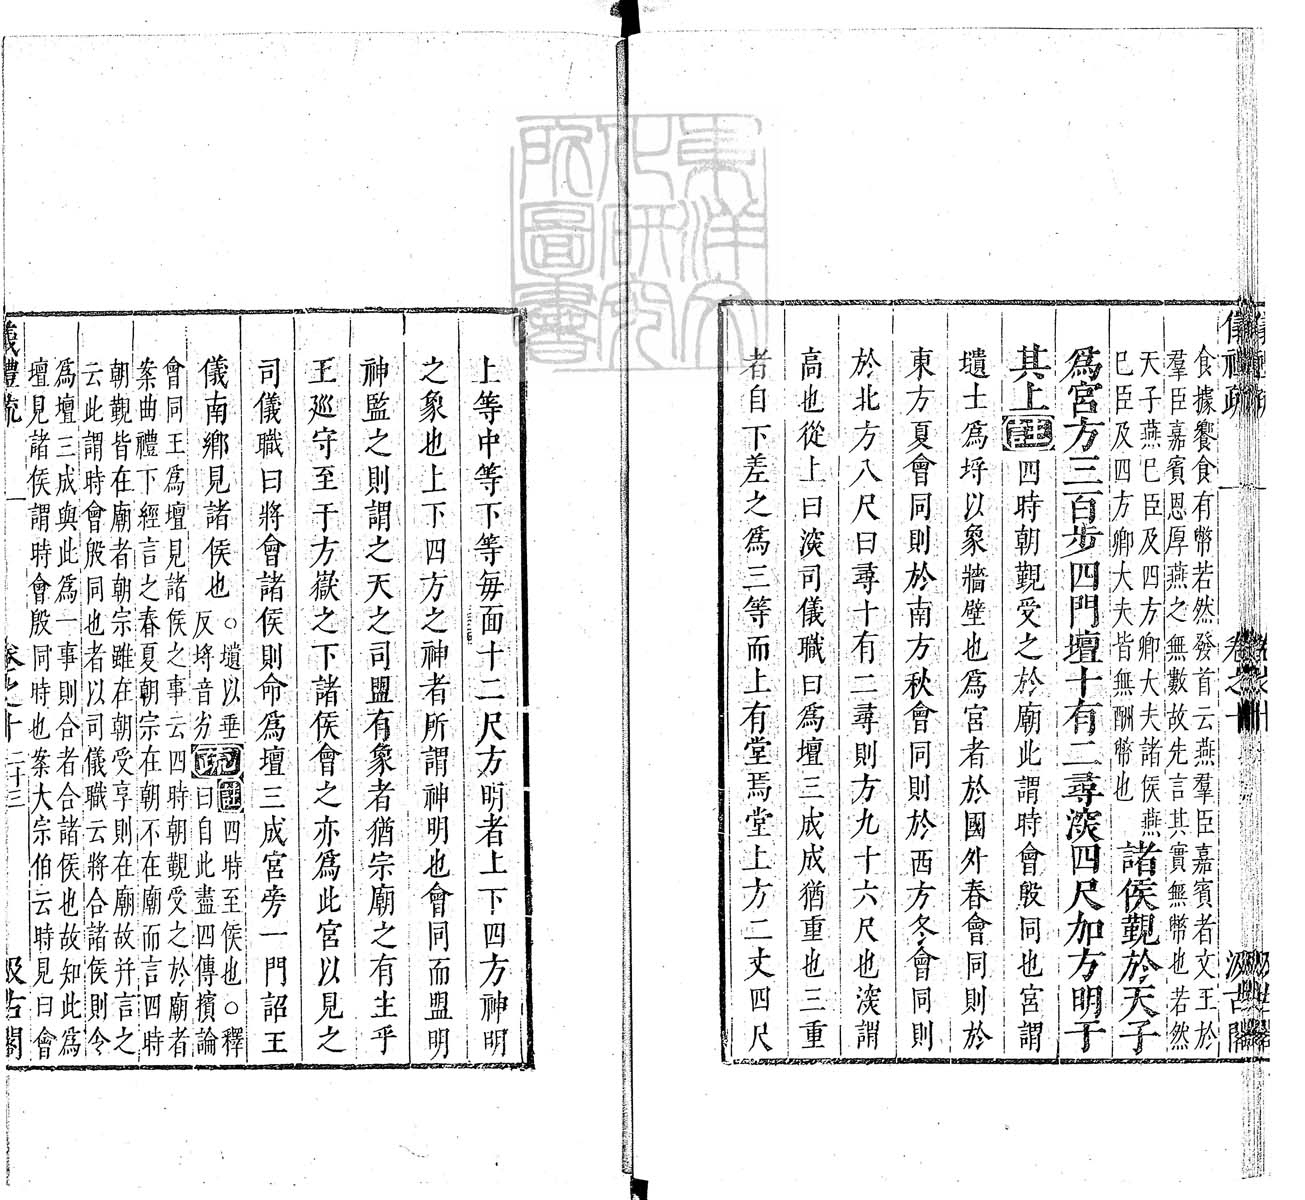 食據饗食有幣若然發首云燕羣臣嘉賓者文王於
羣臣嘉賓恩厚燕之無數故先言其實無幣也若然
天子燕已臣及四方卿大夫諸侯燕
已臣及四方卿大夫皆無酬幣也
諸侯覲於天子
爲宮方三百步四門壇十有二尋深四尺加方明于
其上註四時朝覲受之於廟此謂時會殷同也宮謂
壝土爲埒以象牆壁也爲宮者於國外春會同則於
東方夏會同則於南方秋會同則於西方冬會同則
於北方八尺曰尋十有二尋則方九十六尺也深謂
高也從上曰深司儀職曰爲壇三成成猶重也三重
者自下差之爲三等而上有堂焉堂上方二丈四尺
上等中等下等每面十二尺方明者上下四方神明
之象也上下四方之神者所謂神明也會同而盟明
神監之則謂之天之司盟有象者猶宗廟之有主乎
王巡守至于方嶽之下諸侯會之亦爲此宮以見之
司儀職曰將會諸侯則命爲壇三成宮旁一門詔王
儀南鄉見諸侯也
○壝以垂
反埒音劣
疏註四時至侯也○釋
曰自此盡四傳擯論
會同王爲壇見諸侯之事云四時朝覲受之於廟者
案曲禮下經言之春夏朝宗在朝不在廟而言四時
朝覲皆在廟者朝宗雖在朝受享則在廟故并言之
云此謂時會殷同也者以司儀職云將合諸侯則令
爲壇三成與此爲一事則合者合諸侯也故知此爲
壇見諸侯謂時會殷同時也案大宗伯云時見曰會
儀禮疏
卷之十
二十三
汲古閣
東洋文化研究所圖書